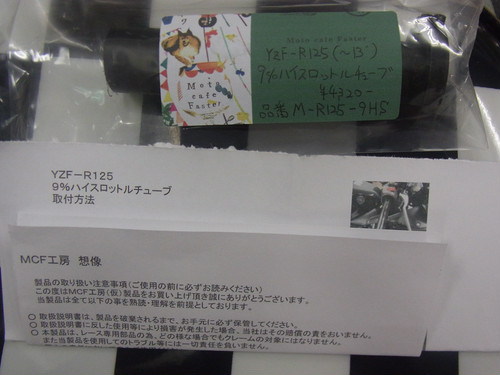 Moto cafe Faster
Moto
cafe
Faster
YZF-R125(～13')
9%ハイスロットルチューブ
¥4320-
品番 M-R125-9HS
YZF－R125
9％ハイスロットルチューブ
取付方法
MCF工房 想像
製品の取り扱い注意事項（ご使用の前に必ずお読みください）
この度はMCF工房（仮）製品をお買い上げ頂き誠にありがとうございます。
当製品は全て以下の事を熟読・理解を前提としております。
○ 取扱説明書は、製品を破棄されるまで、お手元に必ず保管してください。
○ 取扱説明書に反した使用等により損害が発生した場合、当社はその賠償の責をおいません。
○ 本製品は、レース専用部品の為、どの様な場合でもクレームの対象にはなりません。
また当製品を使用してのトラブル等には一切責任を負いません。